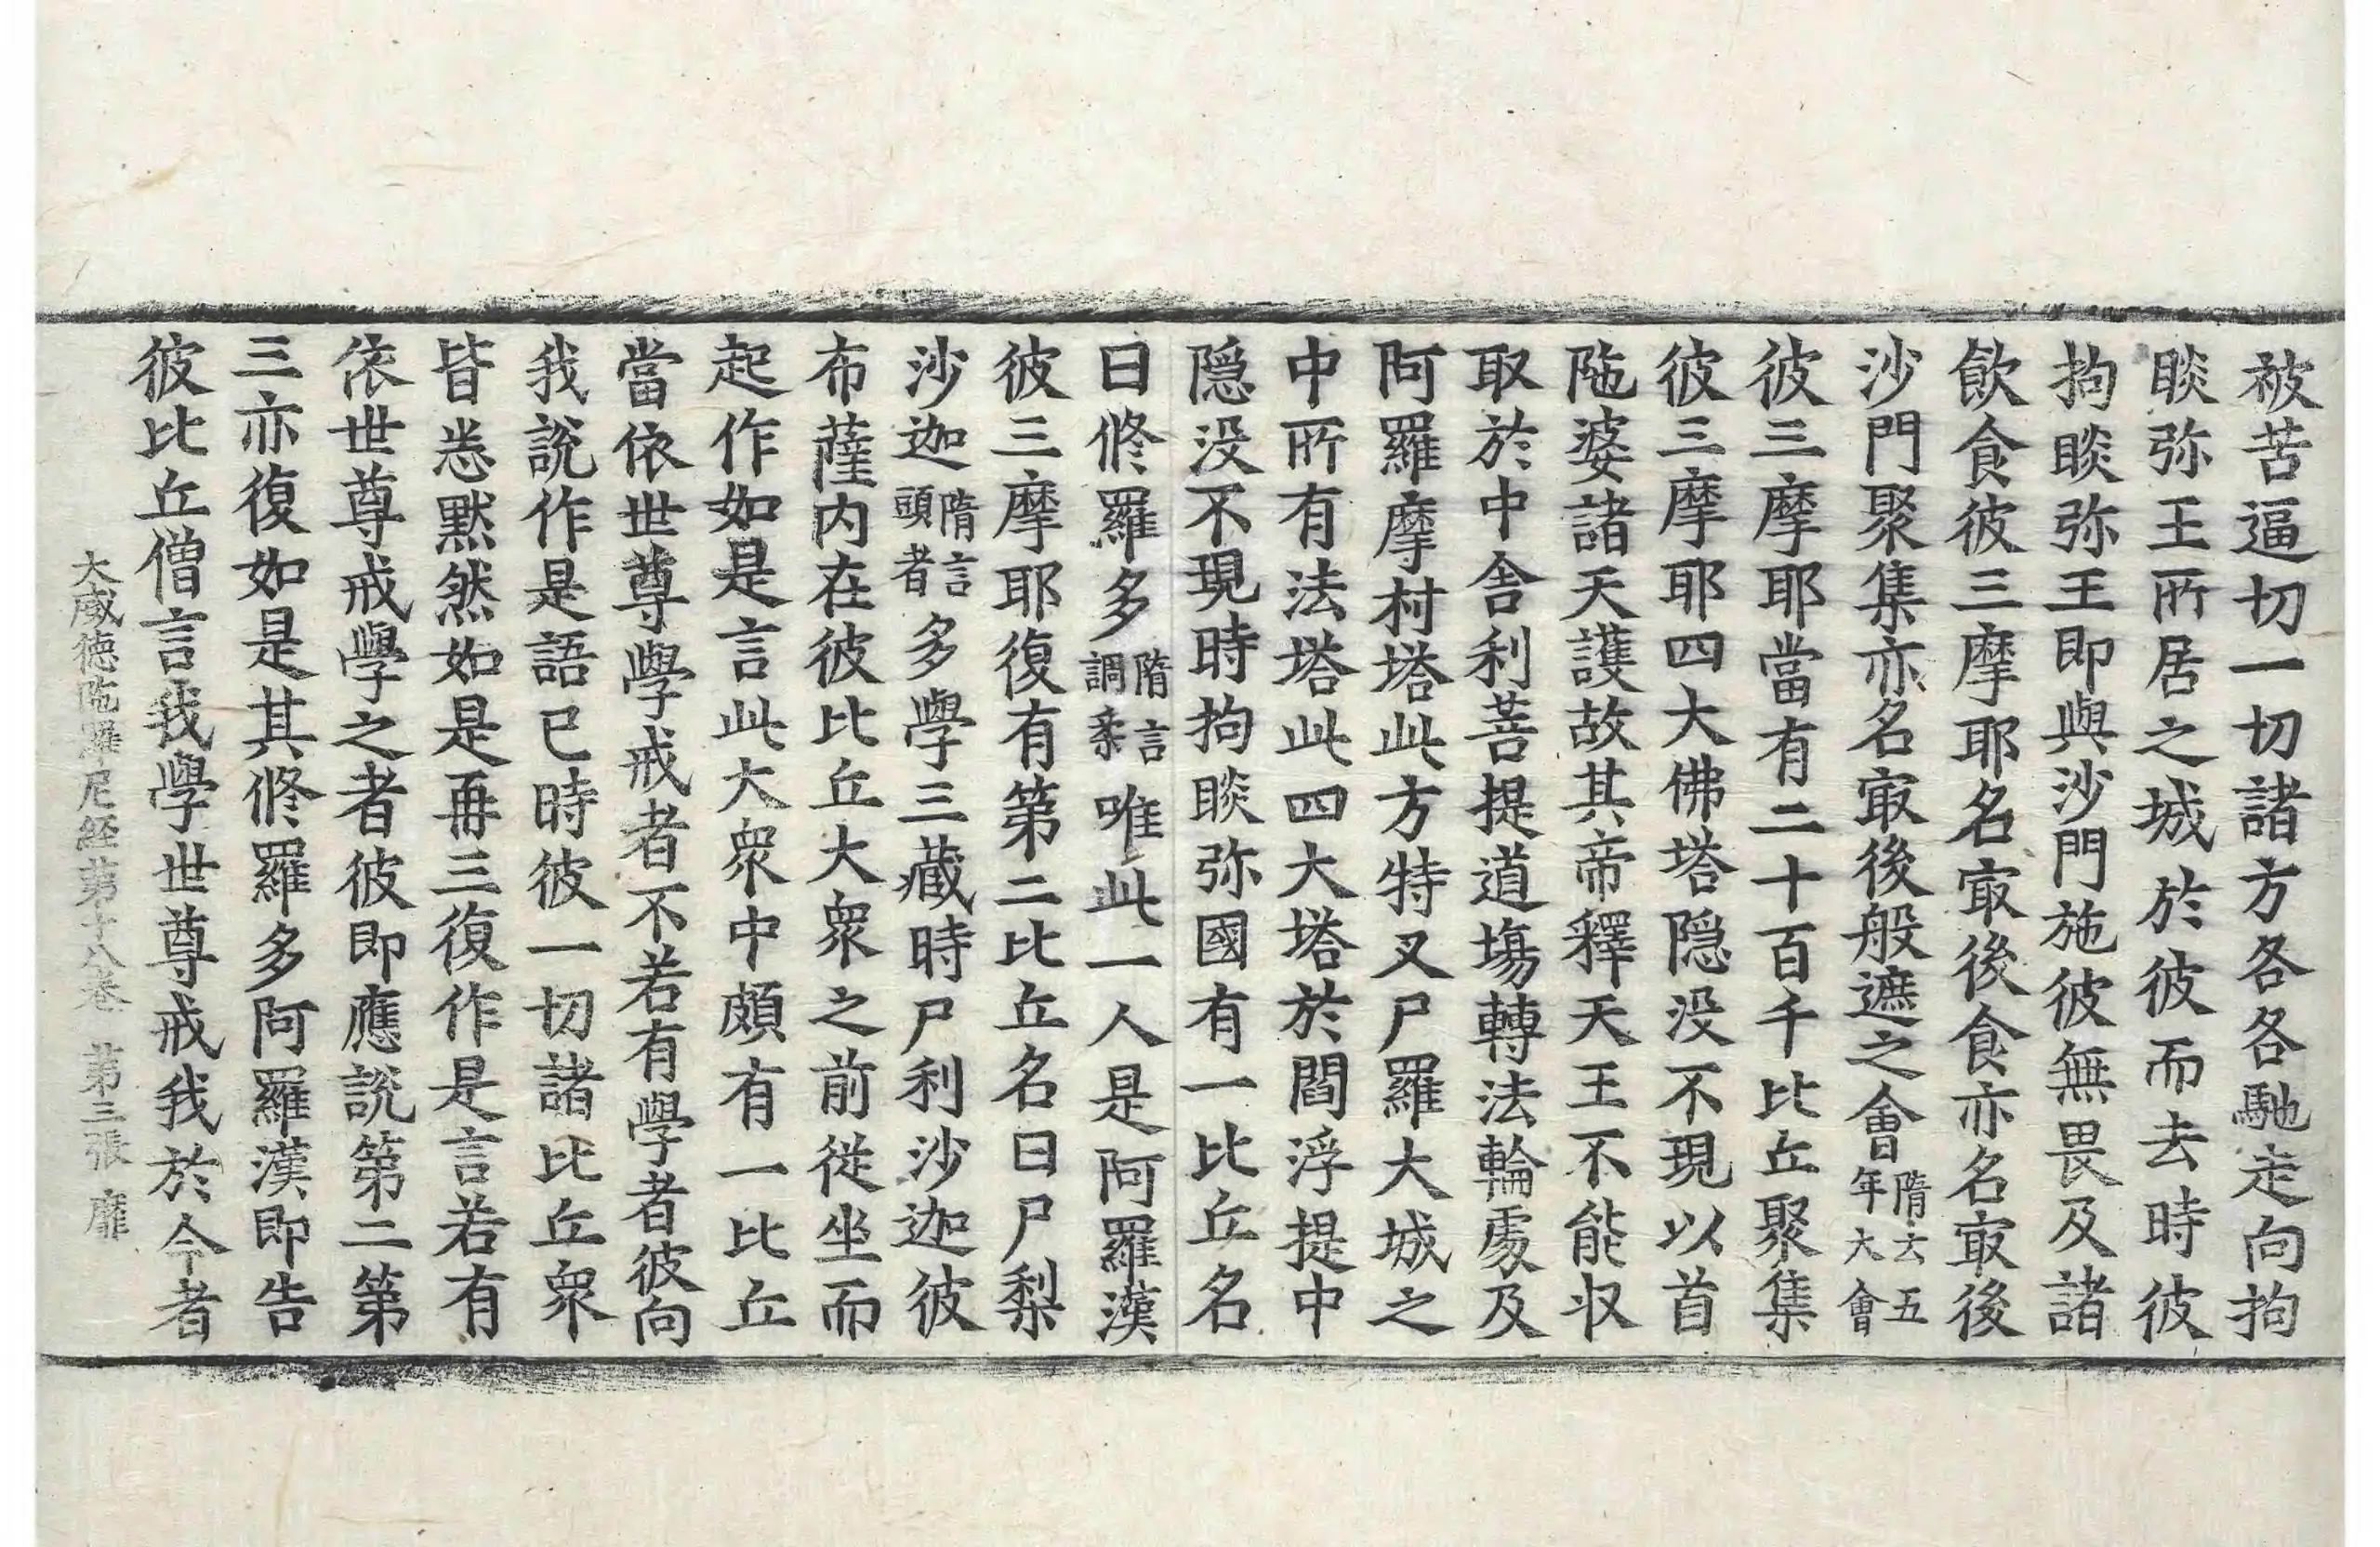 被苦逼切一切諸方各各馳走向拘
睒弥王所居之城於彼而去時彼
拘睒弥王即與沙門施彼無畏及諸
飲食彼三摩耶名㝡後食亦名㝡後
沙門聚集亦名㝡後般遮之會隋云五年大會
彼三摩耶當有二十百千比丘聚集
彼三摩耶四大佛塔隠没不現以首
陁婆諸天護故其帝釋天王不能収
取於中舎利菩提道塲轉法輪處及
阿羅摩村塔此方特叉尸羅大城之
中所有法塔此四大塔於閻浮提中
隠没不現時拘睒弥國有一比丘名
曰修羅多隋言調柔唯此一人是阿羅漢
彼三摩耶復有第二比丘名曰尸梨
沙迦隋言頭者多學三藏時尸利沙迦彼
布薩内在彼比丘大衆之前従坐而
起作如是言此大衆中頗有一比丘
當依世尊學戒者不若有學者彼向
我說作是語已時彼一切諸比丘衆
皆悉默然如是再三復作是言若有
依世尊戒學之者彼即應說第二第
三亦復如是其修羅多阿羅漢即告
彼比丘僧言我學世尊戒我於今者
大威徳陁羅尼経第十八巻 第三張 靡